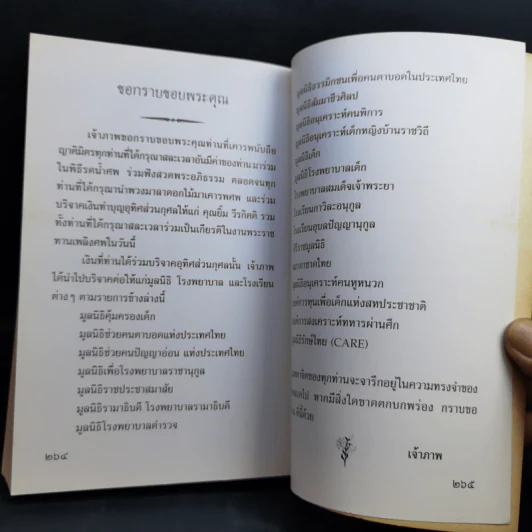 ขอกราบขอบพระคุณ
เจ้าภาพขอกราบขอบพระคุณท่านที่เคารพนับถือ
ญาติมิตรทุกท่านที่ได้กรุณาสละเวลาอันมีค่าของท่าน มาร่วม
ในพิธีรดน้ำศพ ร่วมฟังสวดพระอภิธรรม ตลอดจนทุก
ท่านที่ได้กรุณานำพวงมาลาดอกไม้มาเคารพศพ และร่วม
บริจาคเงินทำบุญอุทิศส่วนกุศลให้แก่ คุณยิ้ม วีรกิตติ รวม
ทั้งท่านที่ได้กรุณาสละเวลาร่วมเป็นเกียรติในงานพระราช
ทานเพลิงศพในวันนี้
เงินที่ท่านได้ร่วมบริจาคอุทิศส่วนกุศลนั้น เจ้าภาพ
ได้นำไปบริจาคต่อให้แก่มูลนิธิ โรงพยาบาล และโรงเรียน
ต่าง ๆ ตามรายการข้างล่างนี้
มูลนิธิคุ้มครองเด็ก
มูลนิธิช่วยคนตาบอดแห่งประเทศไทย
มูลนิธิช่วยคนปัญญาอ่อน แห่งประเทศไทย
มูลนิธิเพื่อโรงพยาบาลราชานุกูล
มูลนิธิราชประชาสมาสัย
มูลนิธิรามาธิบดี โรงพยาบาลรามาธิบดี
มูลนิธิโรงพยาบาลตำรวจ
๒๖๔
มูลนิธิธรรมิกชนเพื่อคนตาบอดในประเทศไทย
มูลนิธิสัมมาชีวศิลป
มูลนิธิอนุเคราะห์คนพิการ
มูลนิธิอนุเคราะห์เด็กหญิงบ้านราชวิถี
มูลนิธิเด็ก
มูลนิธิโรงพยาบาลเด็ก
โรงพยาบาลสมเด็จเจ้าพระยา
โรงเรียนกาวิละอนุกูล
โรงเรียนอุบลปัญญานุกูล
ศิริราชมูลนิธิ
สภากาชาดไทย
มูลนิธิอนุเคราะห์คนหูหนวก
องค์การทุนเพื่อเด็กแห่งสหประชาชาติ
องค์การสงเคราะห์ทหารผ่านศึก
มูลนิธิรักษ์ไทย (CARE)
ของทุกท่านจะจารึกอยู่ในความทรงจำของ
หากมีสิ่งใดขาดตกบกพร่อง กราบขอ
ที่นี้ด้วย
เจ้าภาพ
๒๖๕